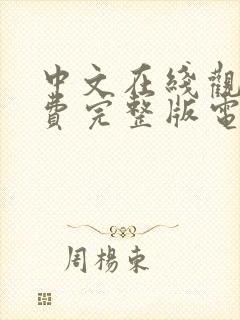 中文在綫觀
費完整版電
周楊東